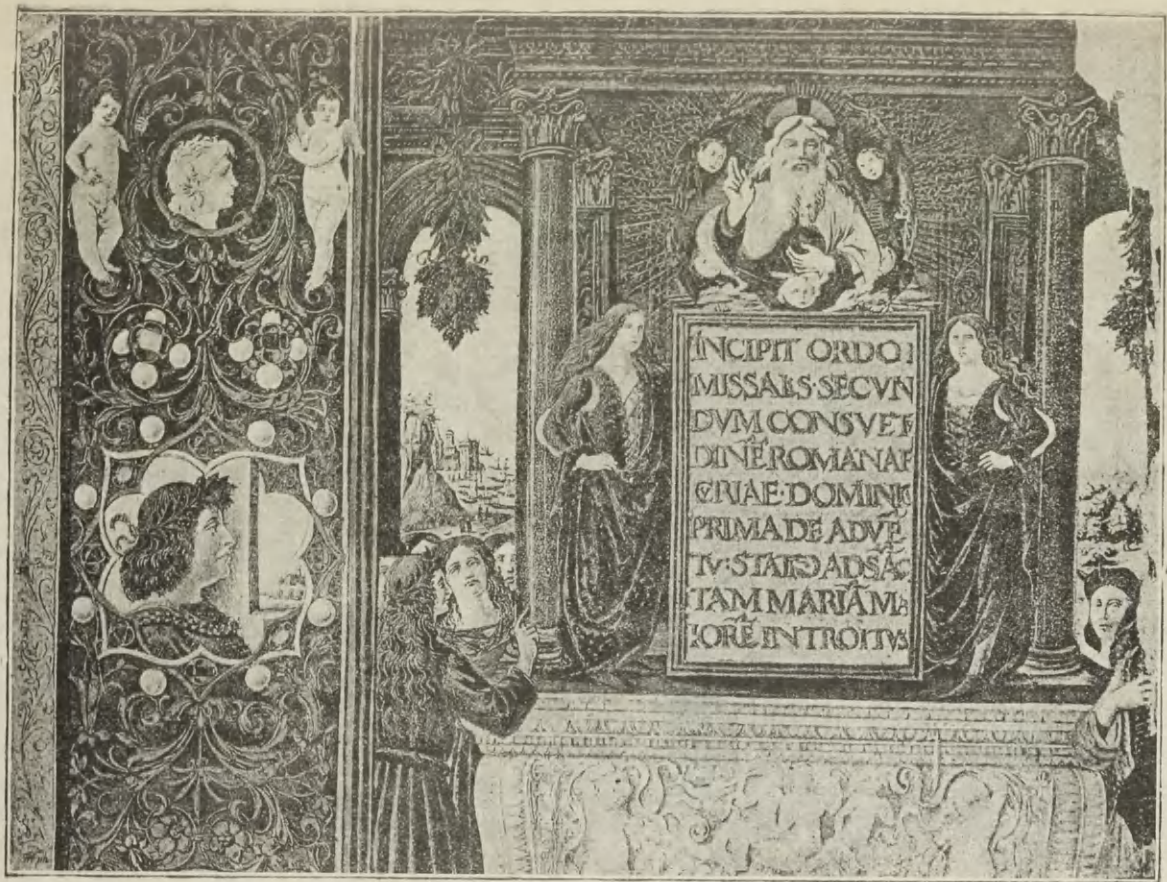 INCIPIT ORDO
MISSALIS·SECVN
DVM CONSVET
DINĒ ROMANAE
CVRIAE·DOMINIC
PRIMA DE ADVĒ
TV·STATIO AD SĀC
TAM MARIĀ MA
IORĒ INTROITVS